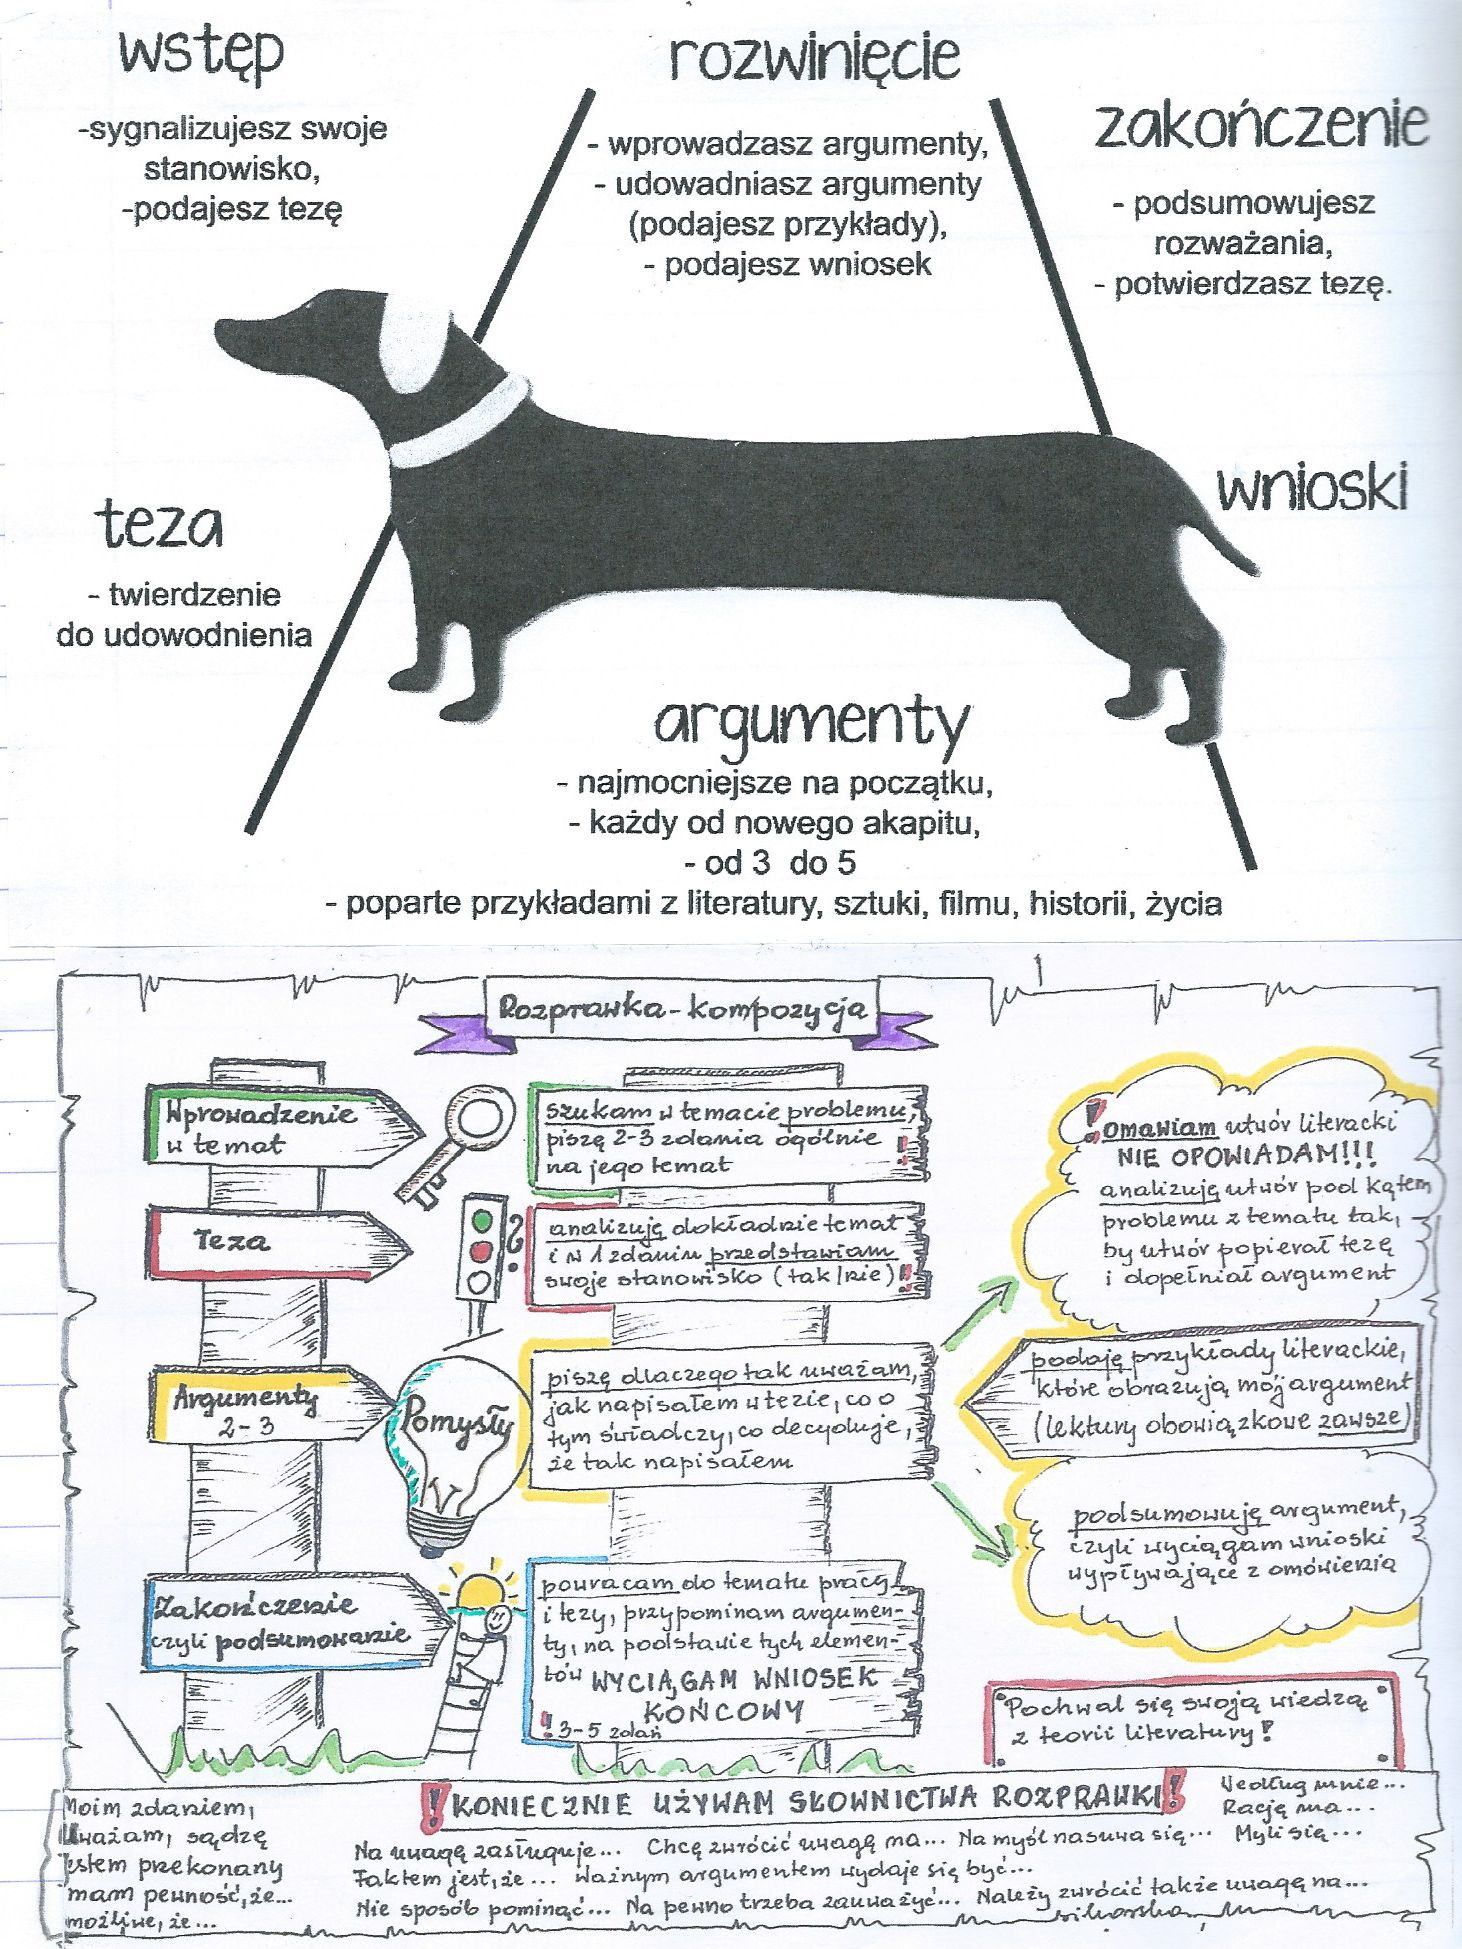 wstęp
-sygnalizujesz swoje
stanowisko,
-podajesz tezę
rozwinięcie
- wprowadzasz argumenty,
- udowadniasz argumenty
(podajesz przykłady),
- podajesz wniosek
zakończenie
- podsumowujesz
rozważania,
- potwierdzasz tezę.
teza
- twierdzenie
do udowodnienia
wnioski
argumenty
- najmocniejsze na początku,
- każdy od nowego akapitu,
- od 3 do 5
- poparte przykładami z literatury, sztuki, filmu, historii, życia
Rozprawka - kompozycja
Wprowadzenie
w temat
szukam w temacie problemu,
piszę 2-3 zdania ogólnie
na jego temat !!
Teza
analizuję dokładnie temat
i w 1 zdaniu przedstawiam
swoje stanowisko (tak/nie) !!
Argumenty
2-3
Pomysły
piszę dlaczego tak uważam,
jak napisałem w tezie, co o
tym świadczy, co decyduje,
że tak napisałem
! omawiam utwór literacki
NIE OPOWIADAM!!!
analizuję utwór pod kątem
problemu z tematu tak,
by utwór popierał tezę
i dopełniał argument
podaję przykłady literackie,
które obrazują mój argument
(lektury obowiązkowe zawsze)
podsumowuję argument,
czyli wyciągam wnioski
wypływające z omówienia
Zakończenie
czyli podsumowanie
powracam do tematu pracy
i tezy, przypominam argumen-
ty, na podstawie tych elemen-
tów WYCIĄGAM WNIOSEK
KOŃCOWY
! 3-5 zdań
Pochwal się swoją wiedzą
z teorii literatury!
! KONIECZNIE UŻYWAM SŁOWNICTWA ROZPRAWKI !
Moim zdaniem,
Uważam, sądzę
Jestem przekonany
mam pewność, że...
możliwe, że...
Według mnie...
Rację ma...
Myli się...
Na uwagę zasługuje... Chcę zwrócić uwagę na... Na myśl nasuwa się...
Faktem jest, że... Ważnym argumentem wydaje się być...
Nie sposób pominąć... Na pewno trzeba zauważyć... Należy zwrócić także uwagę na...